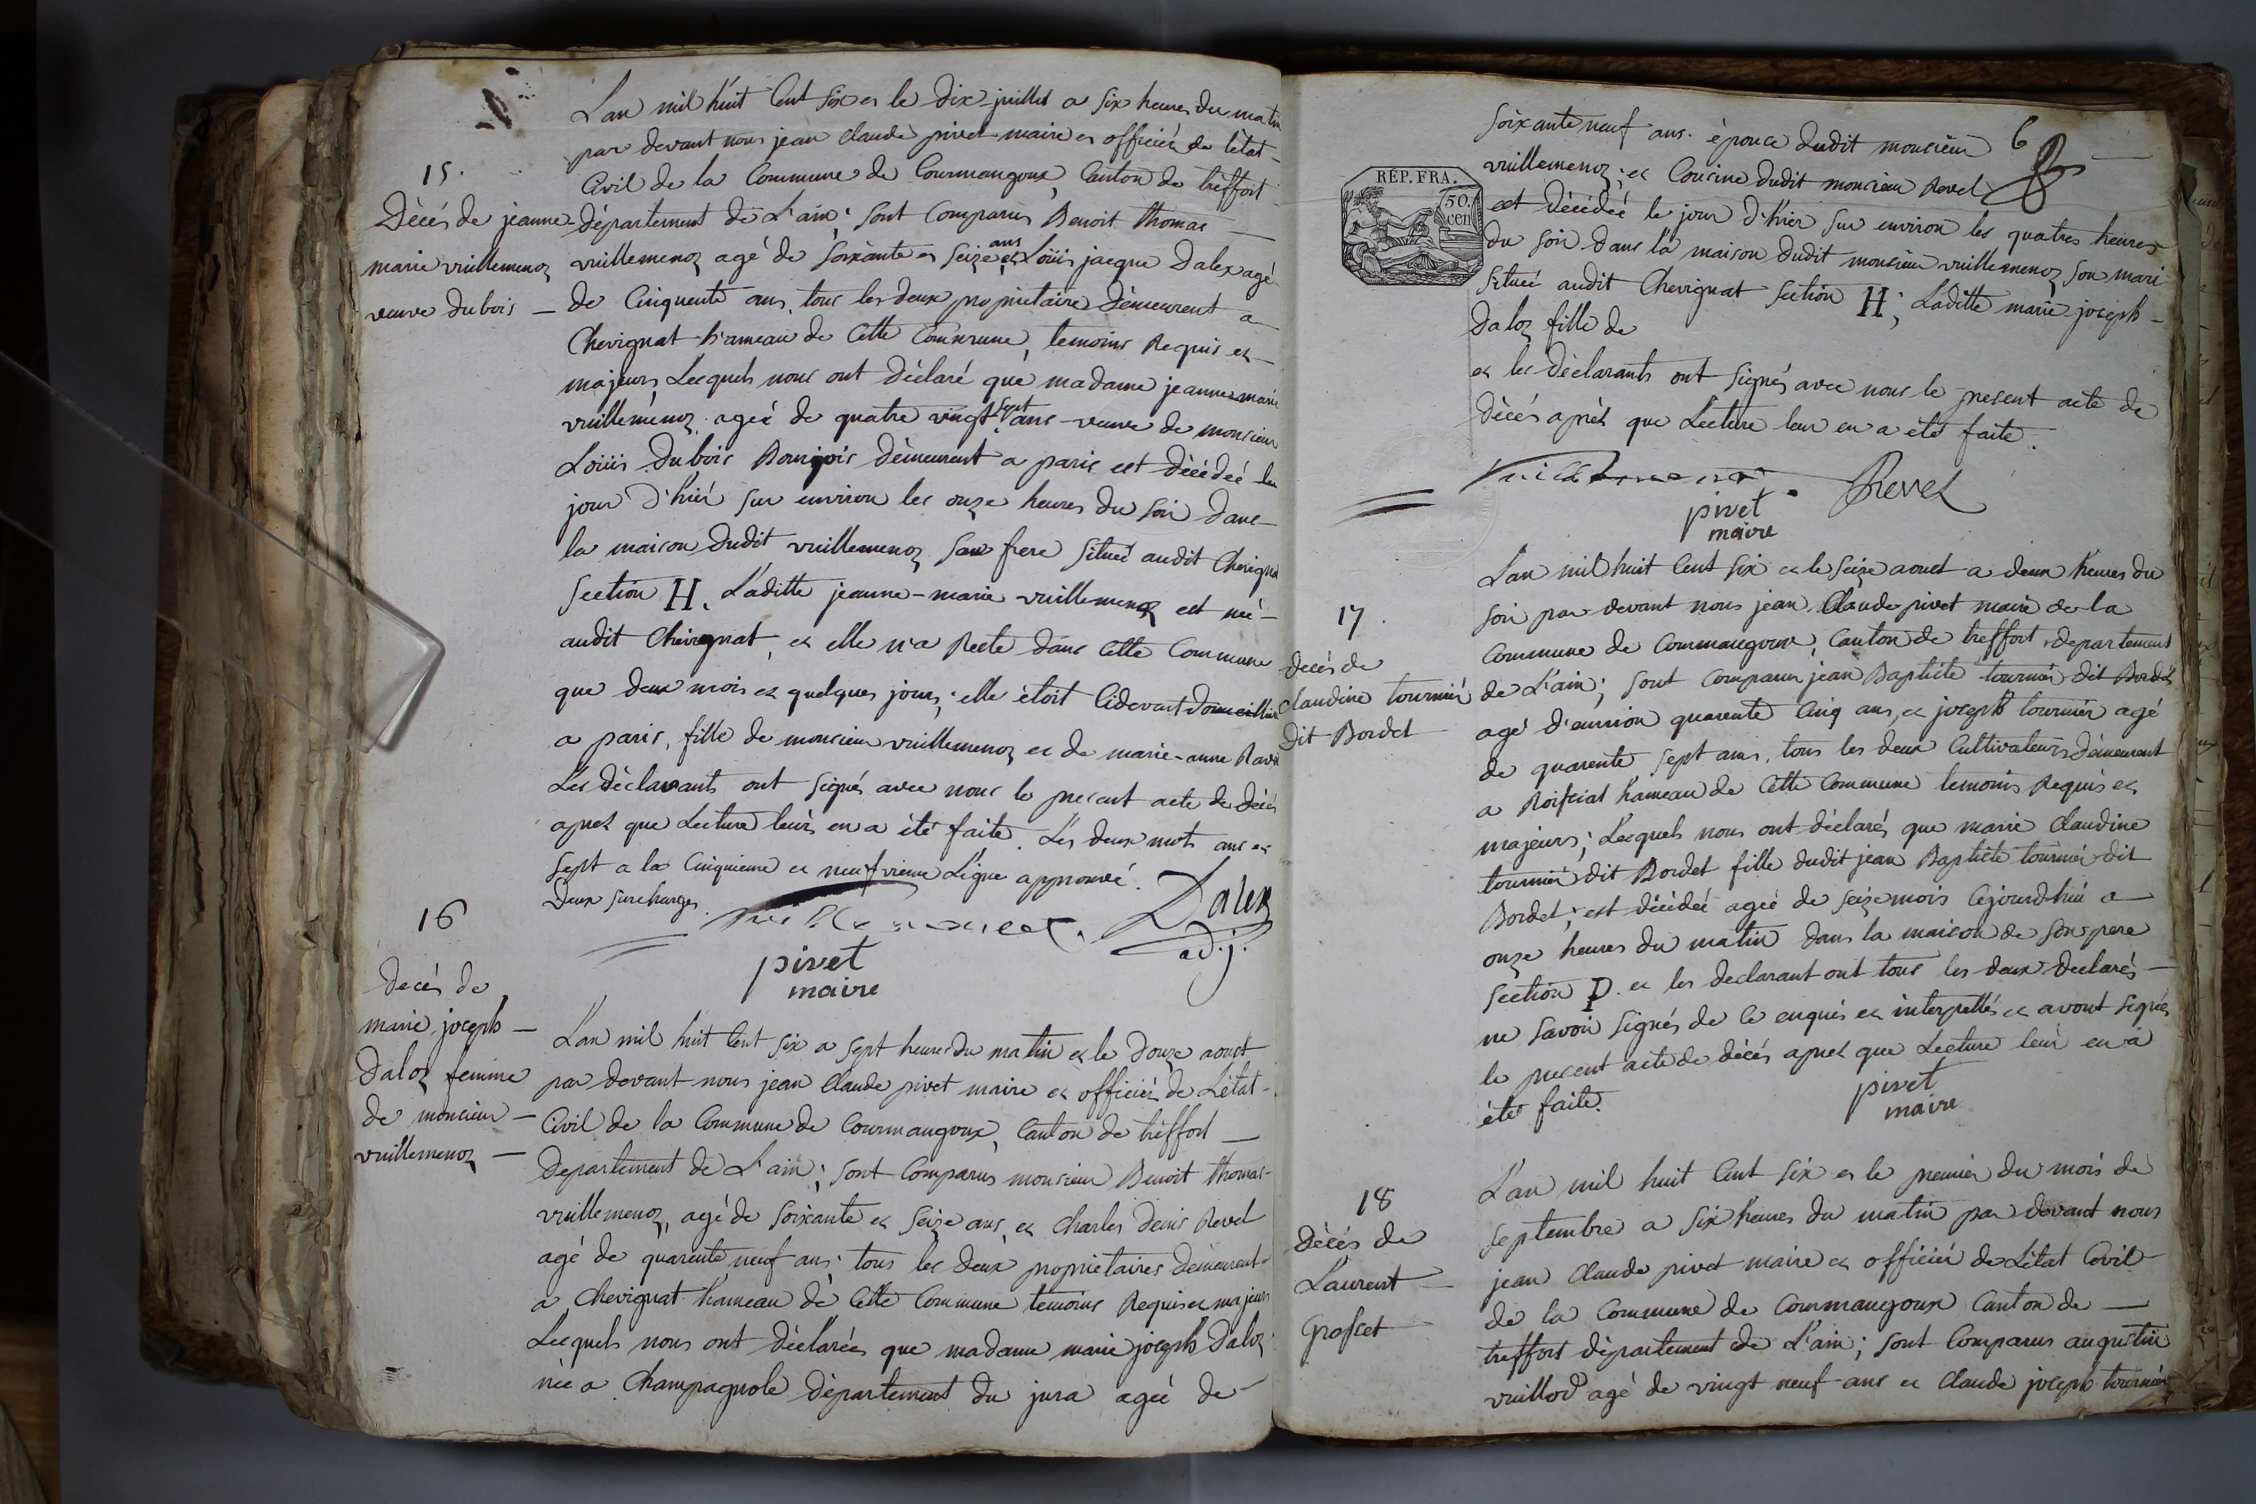 L'an mil huit Cent six et le dix juillet a six heures du matin
par devant nous jean claude pivet maire et officier de l'état
15.
Civil de la Commune de Courmangoux, Canton de treffort
Décés de jeanne
département de L'ain; sont Comparus Benoit thomas
marie vuillemenoz
vuillemenoz agé de soixante et seize ans et Loüis jacque Dalex agé
veuve dubois
de Cinquente ans, tous les deux propriétaire démeurent a
Chevignat h'ameau de Cette Commune, temoins Requis et
majeurs Lesquels nous ont déclaré que madame jeanne marie
vuilleménoz ageé de quatre vingt sept ans veuve de monsieur
Loüis dubois Bourjois démeurent a paris est décédeé le
jour d'hiér sur environ les onze heures du soir dans
la maison dudit vuillemenoz son frere situeé audit Chevignat
Section H. Laditte jeanne-marie vuillemenoz est neé
audit Chevignat, et elle n'a Resté dans Cette Commune
que deux mois et quelques jours; elle étoit Cidevant domicilliée
a paris, fille de monsieur vuillemenoz et de marie-anne
Les déclarants ont signés avec nous le present acte de décés
aprés que Lecture leurs en a été faite. Les deux mots ans et
sept a la Cinquieme et neufvieme Ligne approuvé.
Deux surcharges.
vuillemenoz. Dalex
adj.
pivet
maire
16
decés de
marie joseph
daloz femme
de monsieur
vuillemenoz
L'an mil huit Cent six a sept heures du matin et le douze aoust
par devant nous jean Claude pivet maire et officiér de L'état
Civil de la Commune de Courmangoux, Canton de treffort
Departement de L'ain; sont Comparus monsieur Benoit thomas
vuillemenoz, agé de soixante et seize ans, et Charles denis Revel
agé de quarente neuf ans tous les deux propriétaires démeurent
a Chevignat hameau de Cette Commune temoins Requis et majeurs
Lesquels nous ont déclarées que madame marie joseph Daloz
née a Champagnole département du jura ageé de
6
soixante neuf ans. épouce dudit monsieur
vuillemenoz; et Cousine dudit monsieur Revel
RÉP. FRA.
50.
cen
est décédeé le jour d'hier sur environ les quatres heures
du soir dans la maison dudit monsieur vuillemenoz son mari
situeé audit Chevignat section H; Laditte marie joseph
daloz fille de
et les déclarants ont signés avec nous le present acte de
décés aprés que Lecture leur en a été faite.
vuillemenoz. Revel
pivet
maire
17.
decés de
Claudine tourniér
dit Bordet
L'an mil huit Cent six et le seize aoust a deux heures du
soir par devant nous jean Claude pivet maire de la
Commune de Courmangoux, Canton de treffort departement
de L'ain; sont Comparus jean Baptiste tourniér dit Bordet
agé d'environ quarente Cinq ans, et joseph tourniér agé
de quarente sept ans, tous les deux Cultivateurs démeurent
a Roissiat hameau de Cette Commune temoins Requis et
majeurs; Lesquels nous ont déclarés que marie Claudine
tourniér dit Bordet fille dudit jean Baptiste tourniér dit
Bordet; est décédeé ageé de seize mois Cejourd'hui a
onze heures du matin dans la maison de son pere
section P. et les declarant ont tous les deux declarés
ne savoir signés de Ce enquis et interpellés et avont signés
le present acte de décés aprés que Lecture leur en a
été faite.
pivet
maire
18
Décés de
Laurent
Grosset
L'an mil huit Cent six et le premiér du mois de
septembre a six heures du matin par devant nous
jean Claude pivet maire et officiér de L'état Civil
de la Commune de Courmangoux Canton de
treffort département de L'ain; sont Comparus augustin
vuillod agé de vingt neuf ans et Claude joseph tourniér